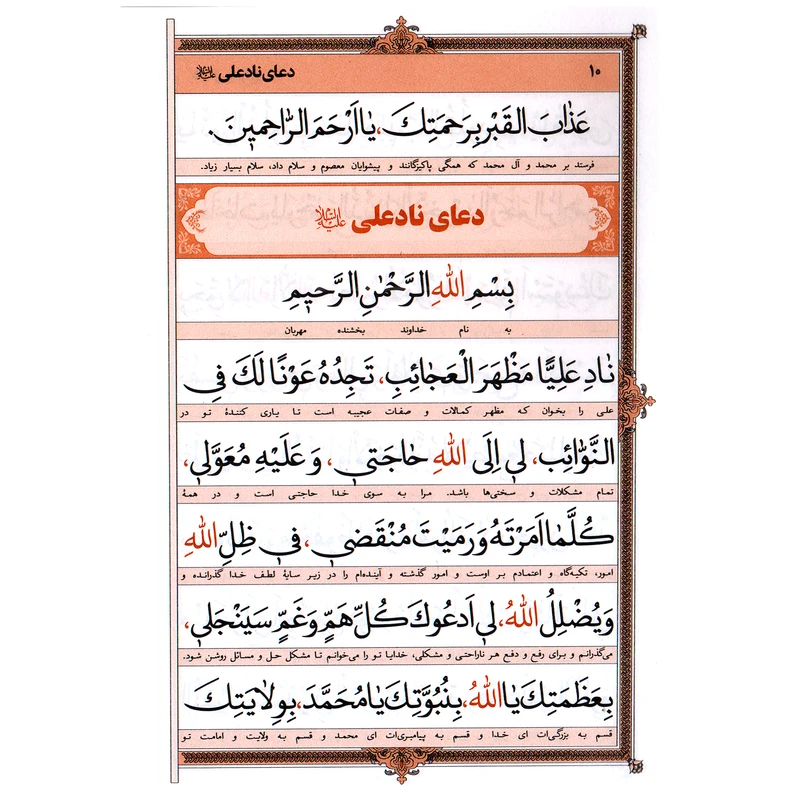 ۱۰ دعای نادعلی علیه‌السلام
عَذٰابَ الْقَبْرِ بِرَحْمَتِكَ، يٰا اَرْحَمَ الرّٰاحِمينَ.
فرستد بر محمد و آل محمد که همگی پاکیزگانند و پیشوایان معصوم و سلام داد، سلام بسیار زیاد.
دعای نادعلی علیه‌السلام
بِسْمِ اللهِ الرَّحْمٰنِ الرَّحيمِ
به نام خداوند بخشنده مهربان
نٰادِ عَلِيًّا مَظْهَرَ الْعَجٰائِبِ، تَجِدْهُ عَوْنًا لَكَ فِى
علی را بخوان که مظهر کمالات و صفات عجیبه است تا یاری کنندهٔ تو در
النَّوٰائِب، لي اِلَى اللهِ حٰاجَتي، وَ عَلَيْهِ مُعَوَّلي،
تمام مشکلات و سختی‌ها باشد. مرا به سوی خدا حاجتی است و در همهٔ
كُلَّمٰا اَمَرْتَهُ وَ رَمَيْتَ مُنْقَضي، في ظِلِّ اللهِ
امور، تکیه‌گاه و اعتمادم بر اوست و امور گذشته و آینده‌ام را در زیر سایهٔ لطف خدا گذرانده و
وَ يُضْلِلُ اللهُ، لي اَدعُوكَ كُلِّ هَمٍّ وَ غَمٍّ سَيَنْجَلي،
می‌گذرانم و برای رفع و دفع هر ناراحتی و مشکلی، خدایا تو را می‌خوانم تا مشکل حل و مسائل روشن شود.
بِعَظَمَتِكَ يٰا اللهُ، بِنُبُوَّتِكَ يٰا مُحَمَّدَ، بِوِلٰايَتِكَ
قسم به بزرگی‌ات ای خدا و قسم به پیامبری‌ات ای محمد و قسم به ولایت و امامت تو